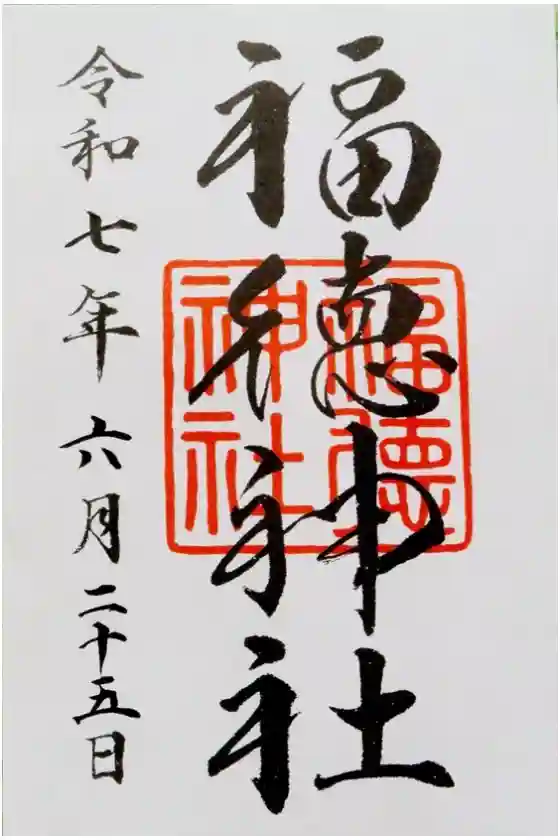 福徳神社
福徳
神社
令和七年六月二十五日